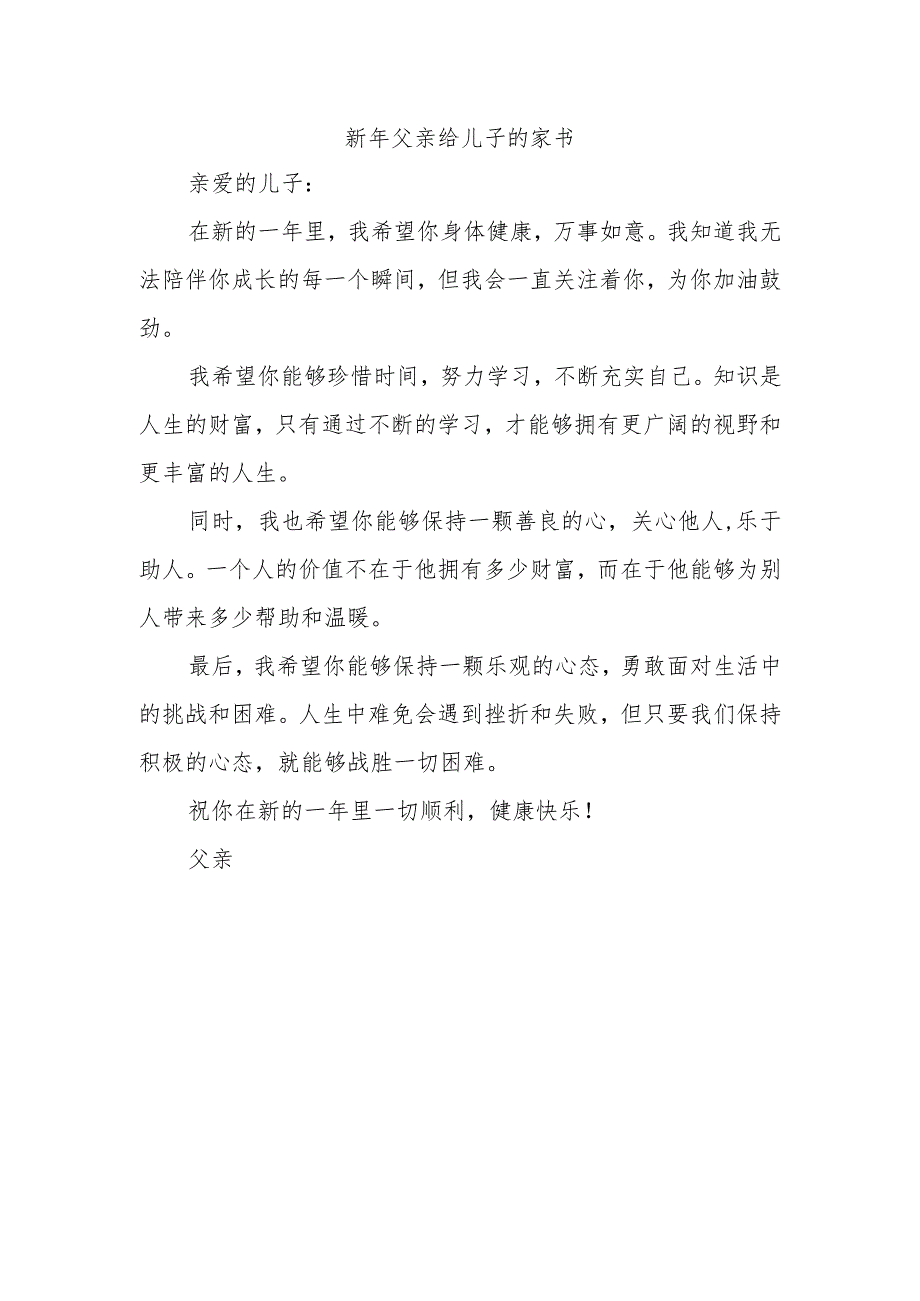 新年父亲给儿子的家书
亲爱的儿子：
在新的一年里，我希望你身体健康，万事如意。我知道我无
法陪伴你成长的每一个瞬间，但我会一直关注着你，为你加油鼓
劲。
我希望你能够珍惜时间，努力学习，不断充实自己。知识是
人生的财富，只有通过不断的学习，才能够拥有更广阔的视野和
更丰富的人生。
同时，我也希望你能够保持一颗善良的心，关心他人,乐于
助人。一个人的价值不在于他拥有多少财富，而在于他能够为别
人带来多少帮助和温暖。
最后，我希望你能够保持一颗乐观的心态，勇敢面对生活中
的挑战和困难。人生中难免会遇到挫折和失败，但只要我们保持
积极的心态，就能够战胜一切困难。
祝你在新的一年里一切顺利，健康快乐！
父亲